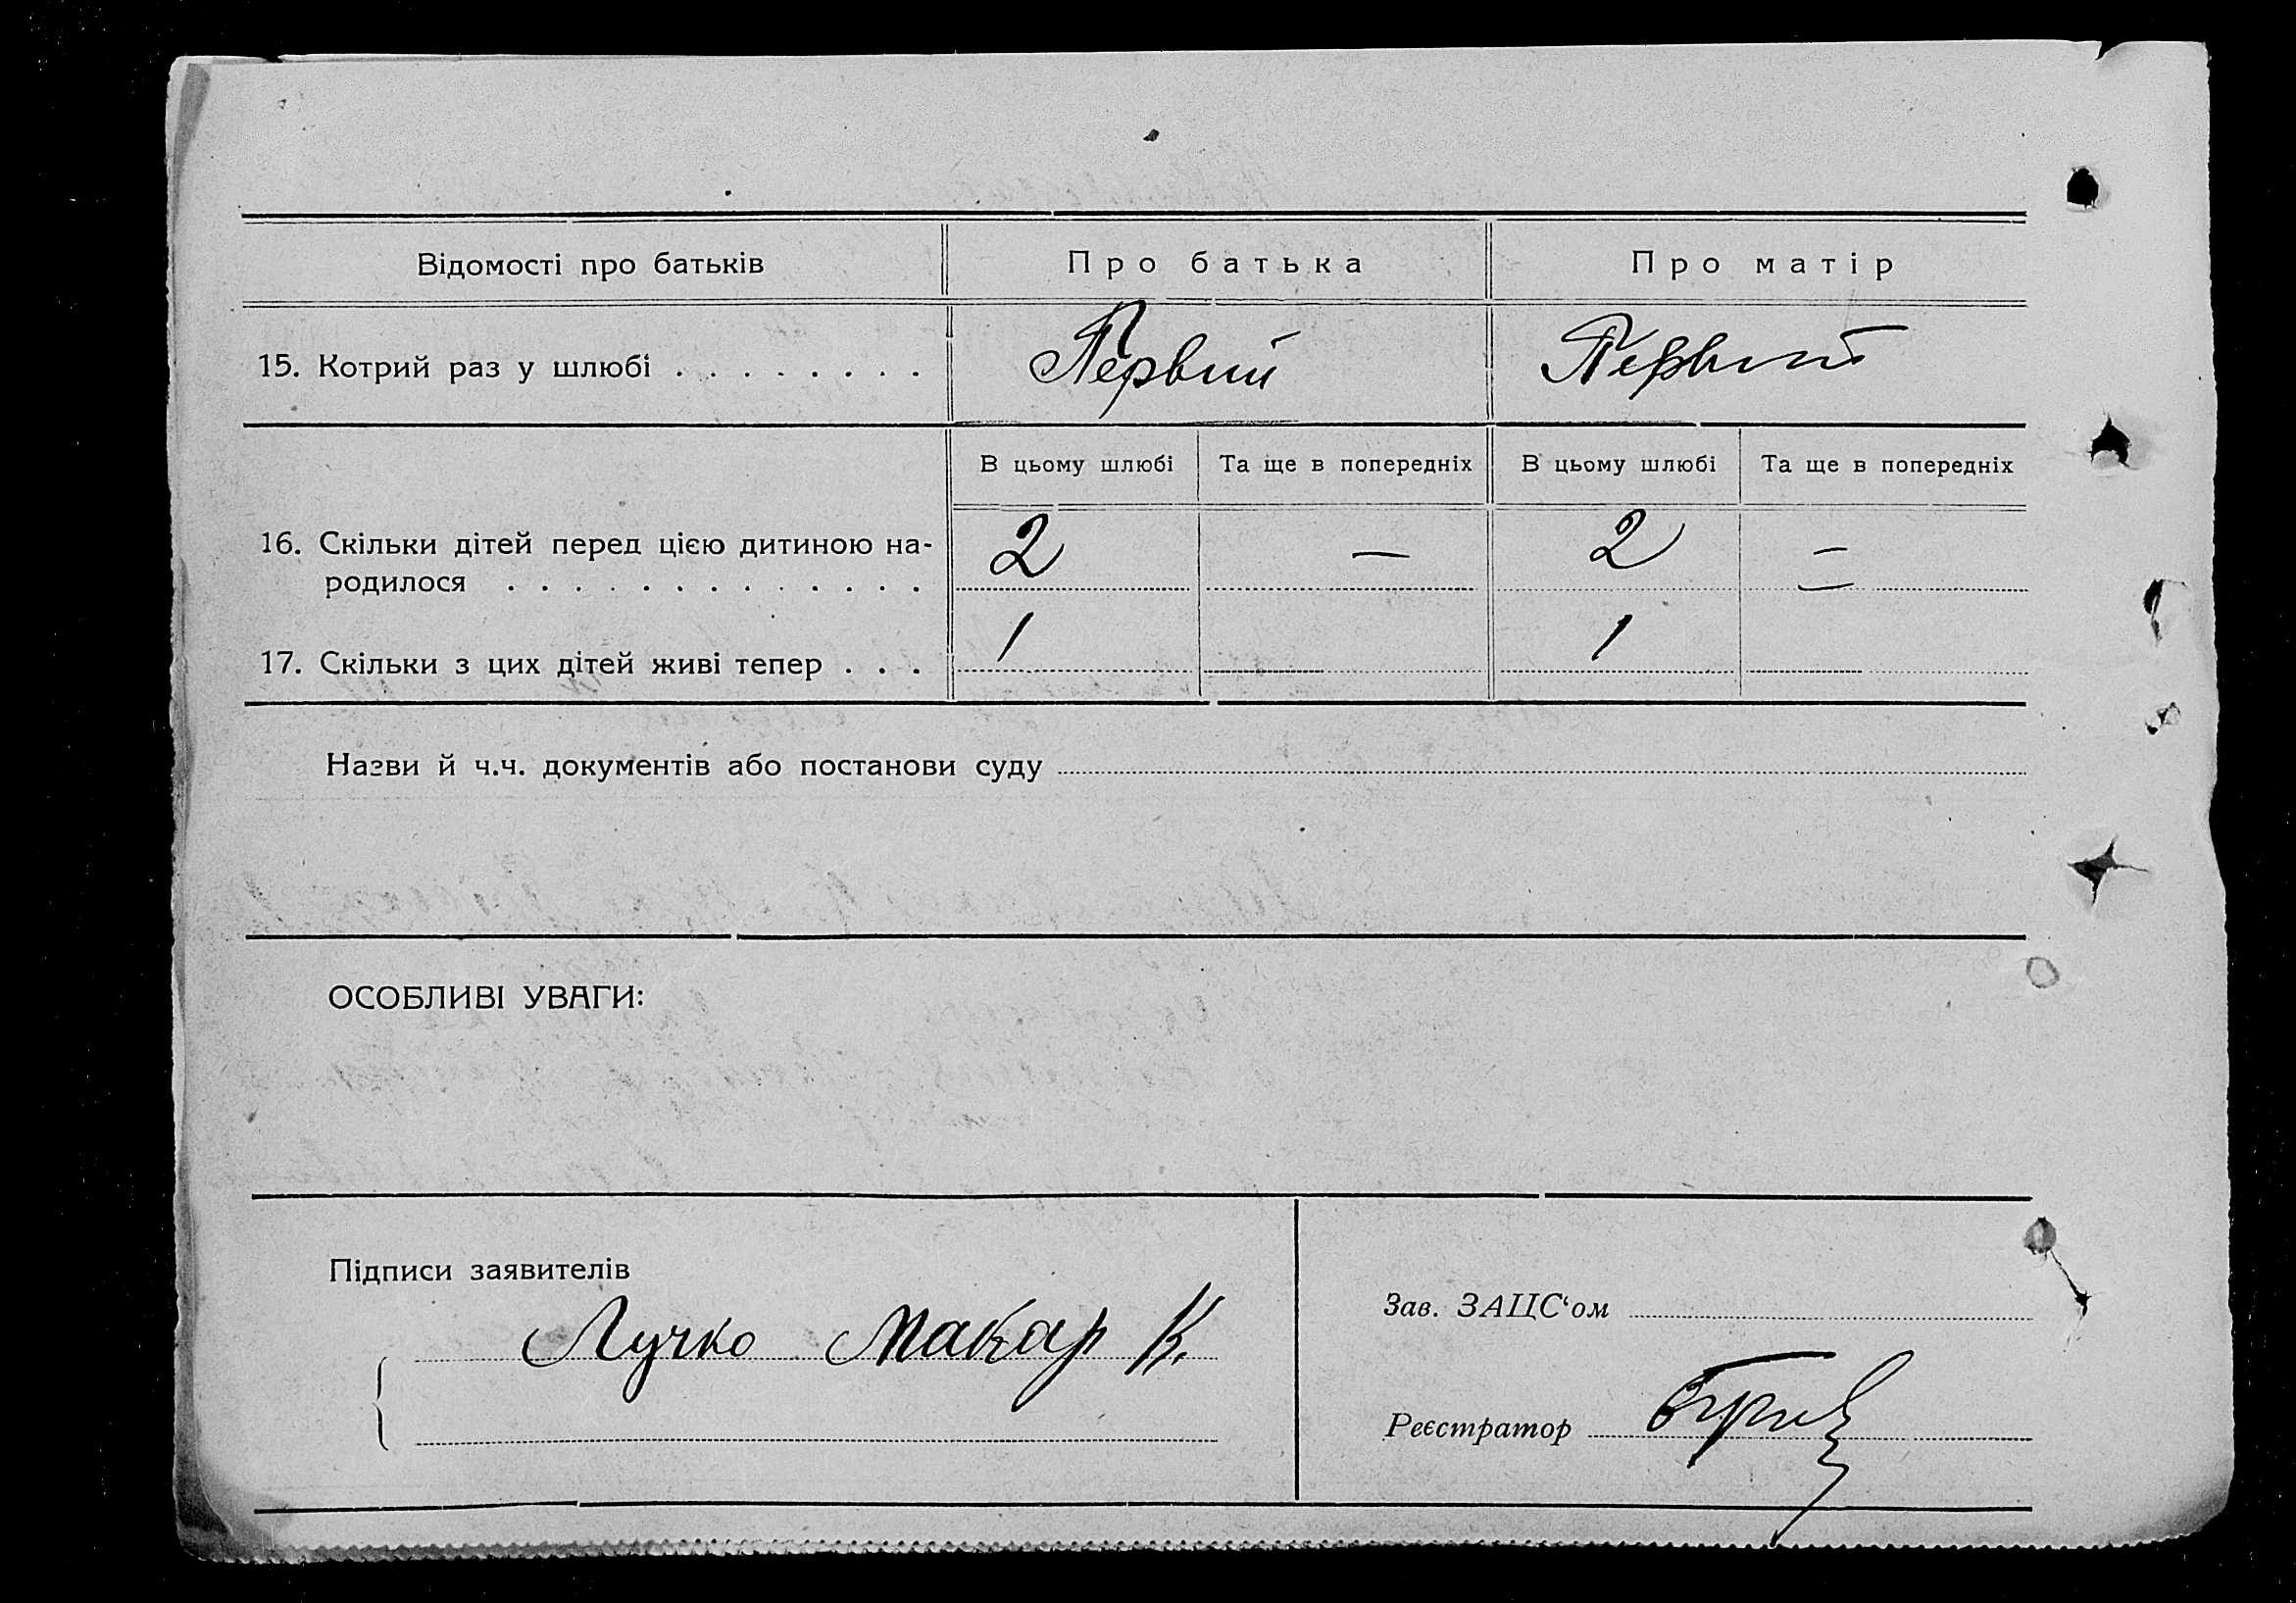 Відомості про батьків Про батька Про матір
15. Котрий раз у шлюбі . . . . . . . . Первий Первий
В цьому шлюбі Та ще в попередніх В цьому шлюбі Та ще в попередніх
16. Скільки дітей перед цією дитиною на- 2 — 2 —
родилося . . . . . . . . . . . . . —
17. Скільки з цих дітей живі тепер . . . 1 1
Назви й ч.ч. документів або постанови суду
ОСОБЛИВІ УВАГИ:
Підписи заявителів
Зав. ЗАЦС‘ом
Лучко Макар К.
Реєстратор